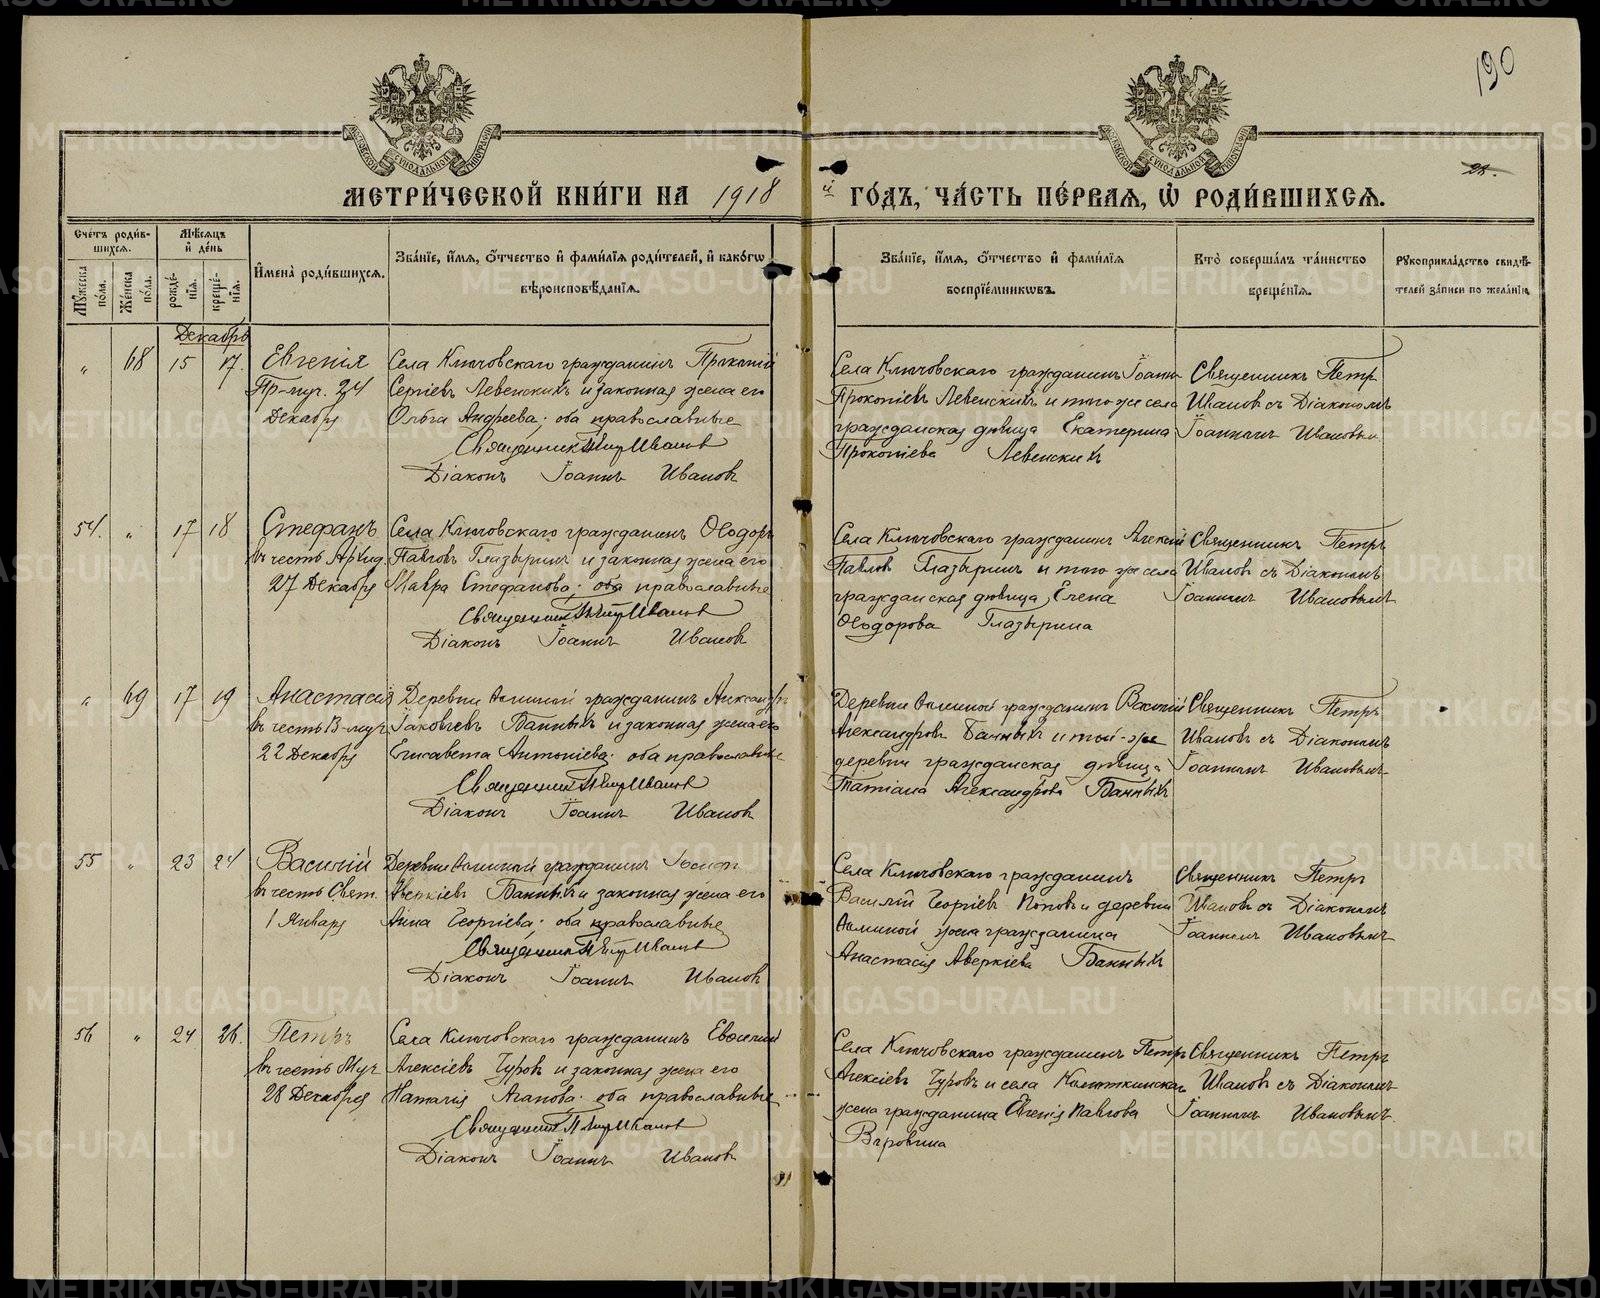 190
28.
МОСКОВСКОЙ СѴНОДАЛЬНОЙ ТИПОГРАФІИ
МОСКОВСКОЙ СѴНОДАЛЬНОЙ ТИПОГРАФІИ
МЕТРИ́ЧЕСКОЙ КНИ́ГИ НА 1918 й ГО́ДЪ, ЧА́СТЬ ПЕ́РВАЯ, Ѡ РОДИ́ВШИХСЯ.
Сче́тъ роди́вшихся.
Му́жеска по́ла.
Же́нска по́ла.
Мѣ́сяцъ и де́нь
рожде́нїя.
креще́нїя.
И҆мена̀ роди́вшихся.
Зва́нїе, и҆́мя, ѻ҆́тчество и҆ фами́лїя роди́телей, и҆ како́гѡ
вѣроисповѣ́данїя.
Зва́нїе, и҆́мя, ѻ҆́тчество и҆ фами́лїя
воспрїе́мниковъ.
Кто̀ соверша́лъ та́инство
креще́нїя.
Рукоприкла́дство свидѣ́телей за́писи по жела́нїю.
Декабрь
„ 68 15 17.
Евгенія
Пр-муч. 24
Декабря
Села Ключовскаго гражданинъ Прокопій
Сергіевъ Левенскихъ и законная жена его
Ольга Андреева; оба православные
Священникъ Петръ Ивановъ
Діаконъ Іоаннъ Ивановъ
Села Ключовскаго гражданинъ Іоаннъ
Прокопіевъ Левенскихъ и того же села
гражданская дѣвица Екатерина
Прокопіева Левенскихъ
Священникъ Петръ
Ивановъ съ Діакономъ
Іоанномъ Ивановымъ
54. „ 17 18
Стефанъ
въ честь Архид.
27 Декабря
Села Ключовскаго гражданинъ Ѳеодоръ
Павловъ Глазыринъ и законная жена его
Мавра Стефанова; оба православные
Священникъ Петръ Ивановъ
Діаконъ Іоаннъ Ивановъ
Села Ключовскаго гражданинъ Алексій
Павловъ Глазыринъ и того же села
гражданская дѣвица Елена
Ѳеодорова Глазырина
Священникъ Петръ
Ивановъ съ Діакономъ
Іоанномъ Ивановымъ
„ 69 17 19
Анастасія
въ честь В-муч.
22 Декабря
Деревни гражданинъ Александръ
Іаковлевъ Банныхъ и законная жена его
Елисавета Антоніева; оба православные
Священникъ Петръ Ивановъ
Діаконъ Іоаннъ Ивановъ
Деревни гражданинъ Василій
Александровъ Банныхъ и той-же
деревни гражданская дѣвица
Татіана Александрова Банныхъ
Священникъ Петръ
Ивановъ съ Діакономъ
Іоанномъ Ивановымъ
55 „ 23 24
Василій
въ честь Свят.
1 Января
Деревни гражданинъ Іосифъ
Аверкіевъ Банныхъ и законная жена его
Анна Георгіева; оба православные
Священникъ Петръ Ивановъ
Діаконъ Іоаннъ Ивановъ
Села Ключовскаго гражданинъ
Василій Георгіевъ Поповъ и деревни
жена гражданина
Анастасія Аверкіева Банныхъ
Священникъ Петръ
Ивановъ съ Діакономъ
Іоанномъ Ивановымъ
56 „ 24 26.
Петръ
въ честь Муч.
28 Декабря
Села Ключовскаго гражданинъ Евѳимій
Алексіевъ Чуровъ и законная жена его
Наталія Агапова; оба православные
Священникъ Петръ Ивановъ
Діаконъ Іоаннъ Ивановъ
Села Ключовскаго гражданинъ Петръ
Алексіевъ Чуровъ и села
жена гражданина Евгенія Павлова
Священникъ Петръ
Ивановъ съ Діакономъ
Іоанномъ Ивановымъ
METRIKI.GASO-URAL.RU